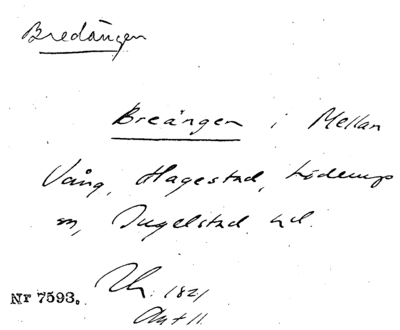 Bredängen
Breängen i Mellan
Vång, Hagestad, Löderups
sn, Ingelstad hd.
Nr 7593.
1821
Akt 11.